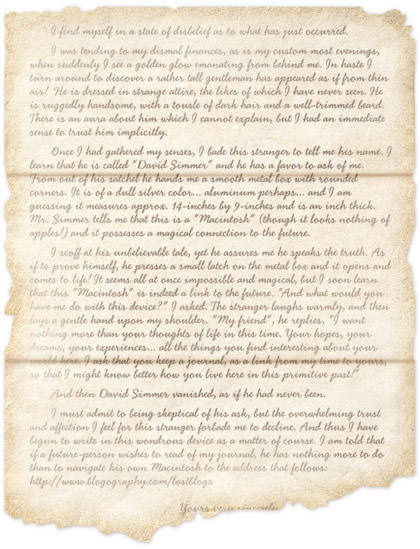 I find myself in a state of disbelief as to what has just occurred.
I was tending to my dismal finances, as is my custom most evenings,
when suddenly I see a golden glow emanating from behind me. In haste I
turn around to discover a rather tall gentleman has appeared as if from thin
air! He is dressed in strange attire, the likes of which I have never seen. He
is ruggedly handsome, with a tousle of dark hair and a well-trimmed beard.
There is an aura about him which I cannot explain, but I had an immediate
sense to trust him implicitly.
Once I had gathered my senses, I bade this stranger to tell me his name. I
learn that he is called "David Simmer" and he has a favor to ask of me.
From out of his satchel he hands me a smooth metal box with rounded
corners. It is of a dull silver color... aluminum perhaps... and I am
guessing it measures approx. 14-inches by 9-inches and is an inch thick.
Mr. Simmer tells me that this is a "Macintosh" (though it looks nothing of
apples!) and it possesses a magical connection to the future.
I scoff at his unbelievable tale, yet he assures me he speaks the truth. As
if to prove himself, he presses a small latch on the metal box and it opens and
comes to life! It seems all at once impossible and magical, but I soon learn
that this "Macintosh" is indeed a link to the future. "And what would you
have me do with this device?" I asked. The stranger laughs warmly, and then
lays a gentle hand upon my shoulder. "My friend", he replies, "I want
nothing more than your thoughts of life in this time. Your hopes, your
dreams, your experiences... all the things you find interesting about your
world here. I ask that you keep a journal, as a link from my time to yours
so that I might know better how you live here in this primitive past!"
And then David Simmer vanished, as if he had never been.
I must admit to being skeptical of his ask, but the overwhelming trust
and affection I feel for this stranger forbade me to decline. And thus I have
begun to write in this wondrous device as a matter of course. I am told that
if a future-person wishes to read of my journal, he has nothing more to do
than to navigate his own Macintosh to the address that follows:
http://www.blogography.com/lostblogs
Yours very sincerely